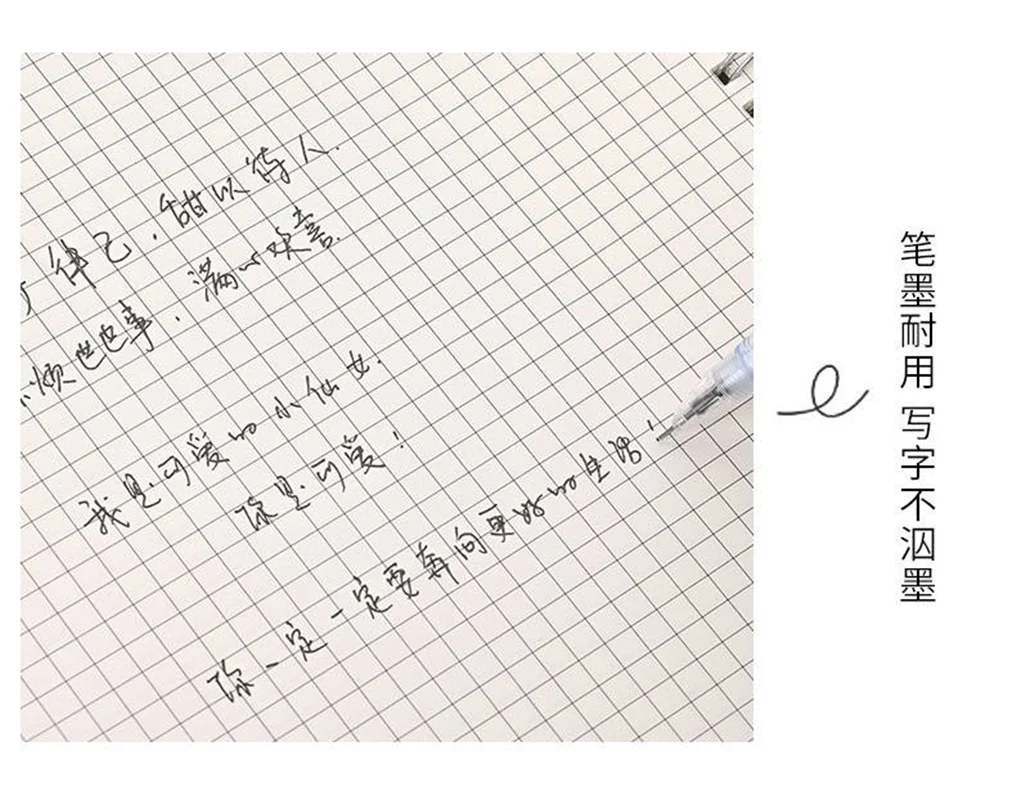 伴己，甜以待人.
烦世世事，满心欢喜.
我是可爱的小仙女.
你是可爱！
你一定一定要奔向更好的生活！
笔墨耐用 写字不泅墨